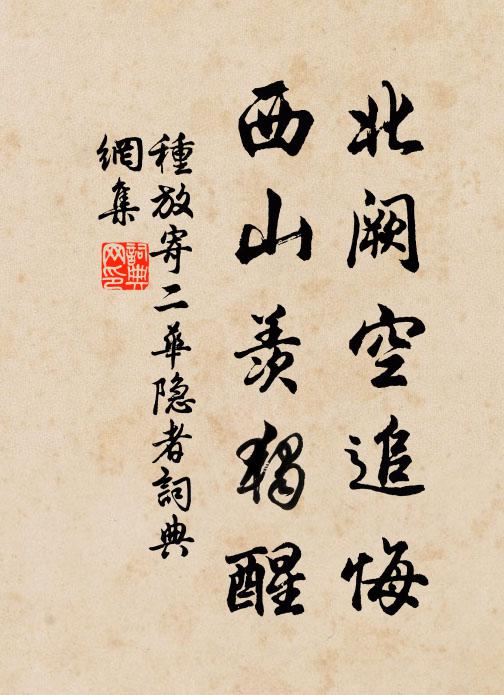 北阙空追悔
西山羡独醒
種放寄二華隐者詞典
網集
詞典網印